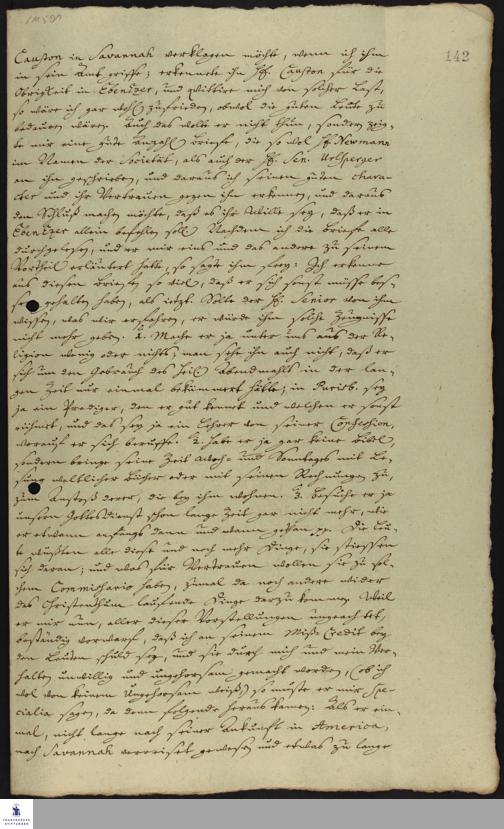 142
Causton in Savannah verklagen möchte, wenn ich ihm
in sein Amt griffe; erkennete ihn H. Causton für die
Obrigkeit in Ebenezer, und mich von solcher Last,
so wäre ich gar wohl zufrieden, obwol die guten Leute zu
bedauren wären. Auch das wolte er nicht thun, sondern zeig-
te mir eine gute Anzahl Briefe, die so wol H. Newmann
im Namen der Societät, als auch der H. Sen. Urlsperger
an ihn geschrieben, und daraus ich seinen guten Chara-
cter und ihr Vertrauen gegen ihn erkennen, und daraus
den Schluß machen möchte, daß es ihr Wille sey, daß er in
Ebenezer allein befehlen soll. Nachdem ich die Briefe alle
durchgelesen, und er mir eins und das andere zu seinem
Vortheil erläutert hatte, so sagte ihm frey: Ich erkenne
aus diesen Briefen so viel, daß er sich sonst müsse bes-
ser gehalten haben, als itzt. Solte der H. Senior von ihm
wissen, was wir erfahren, er würde ihm solche Zeugnisse
nicht mehr geben. 1. Mache er ja unter uns aus der Re-
ligion wenig oder nichts; man sehe ihn auch nicht, daß er
sich um den Gebrauch des Heil. Abendmahls in der lan-
gen Zeit nur einmal bekümmert hätte; in Purisb. sey
ja ein Prediger, den er gut kennet und welchen er sonst
rühmet, und das sey ja ein Lehrer von seiner Confession,
worauf er sich beruffe. 2. habe er ja gar keine Bibel,
sondern bringe seine Zeit Woch- und Sonntages mit Le-
sung weltlicher Bücher oder mit seinen Rechnungen zu,
zum Anstoß derer, die bey ihm wohnen. 3. besuche er ja
unsern Gottesdienst schon lange Zeit gar nicht mehr, wie
er etwann anfangs dann und wann gethan pp. Die Leu-
te wüßten alle diese und noch mehr Dinge, sie stiessen
sich daran; und was für Vertrauen wollen sie zu sol-
chem Commissario haben, zumal da noch andere wider
das Christenthum laufende Dinge darzu kommen. Weil
er mir nun, aller dieser Vorstellungen ungeachtet,
beständig vorwarf, daß ich an seinem Miß-Credit bey
den Leuten schuld sey, und sie durch mich und mein Ver-
halten unwillig und ungehorsam gemacht worden, (ob ich
wol von keinem Ungehorsam weiß) so muste er mir Spe-
cialia sagen, da denn folgende heraus kamen: Als er ein-
mal, nicht lange nach seiner Ankunft in America,
nach Savannah verreiset gewesen und etwas zu lange
FRANCKESCHE
STIFTUNGEN